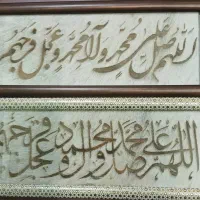 اللهم صل علی محمد و آل محمد و عجل فرجهم
اللهم صل علی محمد و آل محمد و عجل فرجهم